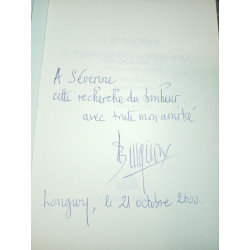 A Séverine
cette recherche du bonheur
avec toute mon amitié
Longwy, le 21 octobre 2000.